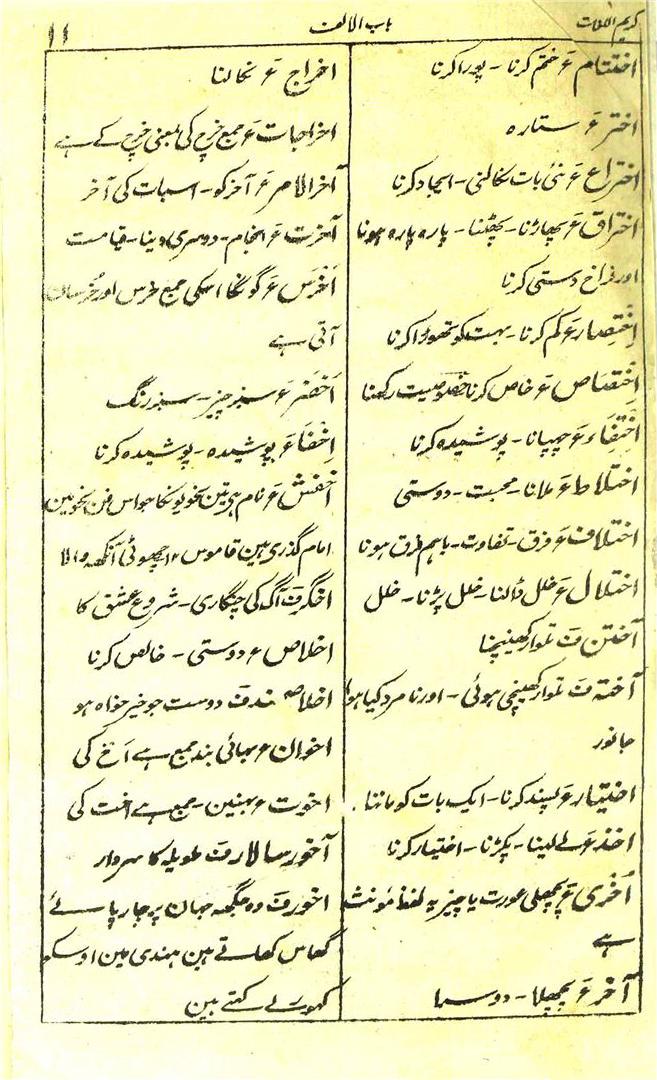 کریم اللغات
باب الالف
۱۱
اختتام ع ختم کرنا - پورا کرنا
اختر ع ستارہ
اختراع ع نئی بات نکالنی - ایجاد کرنا
اختراق ع پھاڑنا - پھٹنا - پارہ پارہ ہونا
اور فراخ دستی کرنا
اِختِصار ع کم کرنا - بہت کو تھوڑا کرنا
اِختِصَاص ع خاص کرنا خصوصیت رکھنا
اِختِفَاء ع چھپانا - پوشیدہ کرنا
اختلاط ع ملانا - محبت - دوستی
اختلاف ع فرق - تفاوت - باہم فرق ہونا
اختلال ع خلل ڈالنا - خلل پڑنا - خلل
آختن ف تلوار کھینچنا
آختہ ف تلوار کھینچی ہوئی - اور نا مرد کیا ہوا
جانور
اختیار ع پسند کرنا - ایک بات کو ماننا
اخذ ع لے لینا - پکڑنا - اختیار کرنا
اُخریٰ ع پچھلی عورت یا چیز یہ لفظ مؤنث
ہے
آخر ع پچھلا - دوسرا
اخراج ع نکالنا
اخراجات ع جمع خرچ کی بمعنی خرچ کے ہے
آخرالامر ع آخر کو - اسبات کی آخر
آخرت ع انجام - دوسری دینا - قیامت
اَخرَس ع گونگا اسکی جمع خرس اور خُرسان
آتی ہے
اَخضَر ع سبز چیز - سبز رنگ
اِخفَاء ع پوشیدہ - پوشیدہ کرنا
اخفش ع نام ہی تین نحویونکا جو اس فن نحو مین
امام گذری ہین قاموس ۱۲ چھوٹی آنکھہ والا
اخگر ف آگ کی چنگاری - شروع عشق کا
اخلاص ع دوستی - خالص کرنا
اخلاص مند ف دوست جو خیر خواہ ہو
اخوان ع بہائی بند جمع ہے اَخ کی
اخوت ع بہنین - جمع ہے اخت کی
آخور سالار ف طویلہ کا سردار
اخور ف وہ جگہہ جہان پر چار پائے
گھاس کھاتے ہین ہندی مین اوسکو
کہورے کہتے ہین